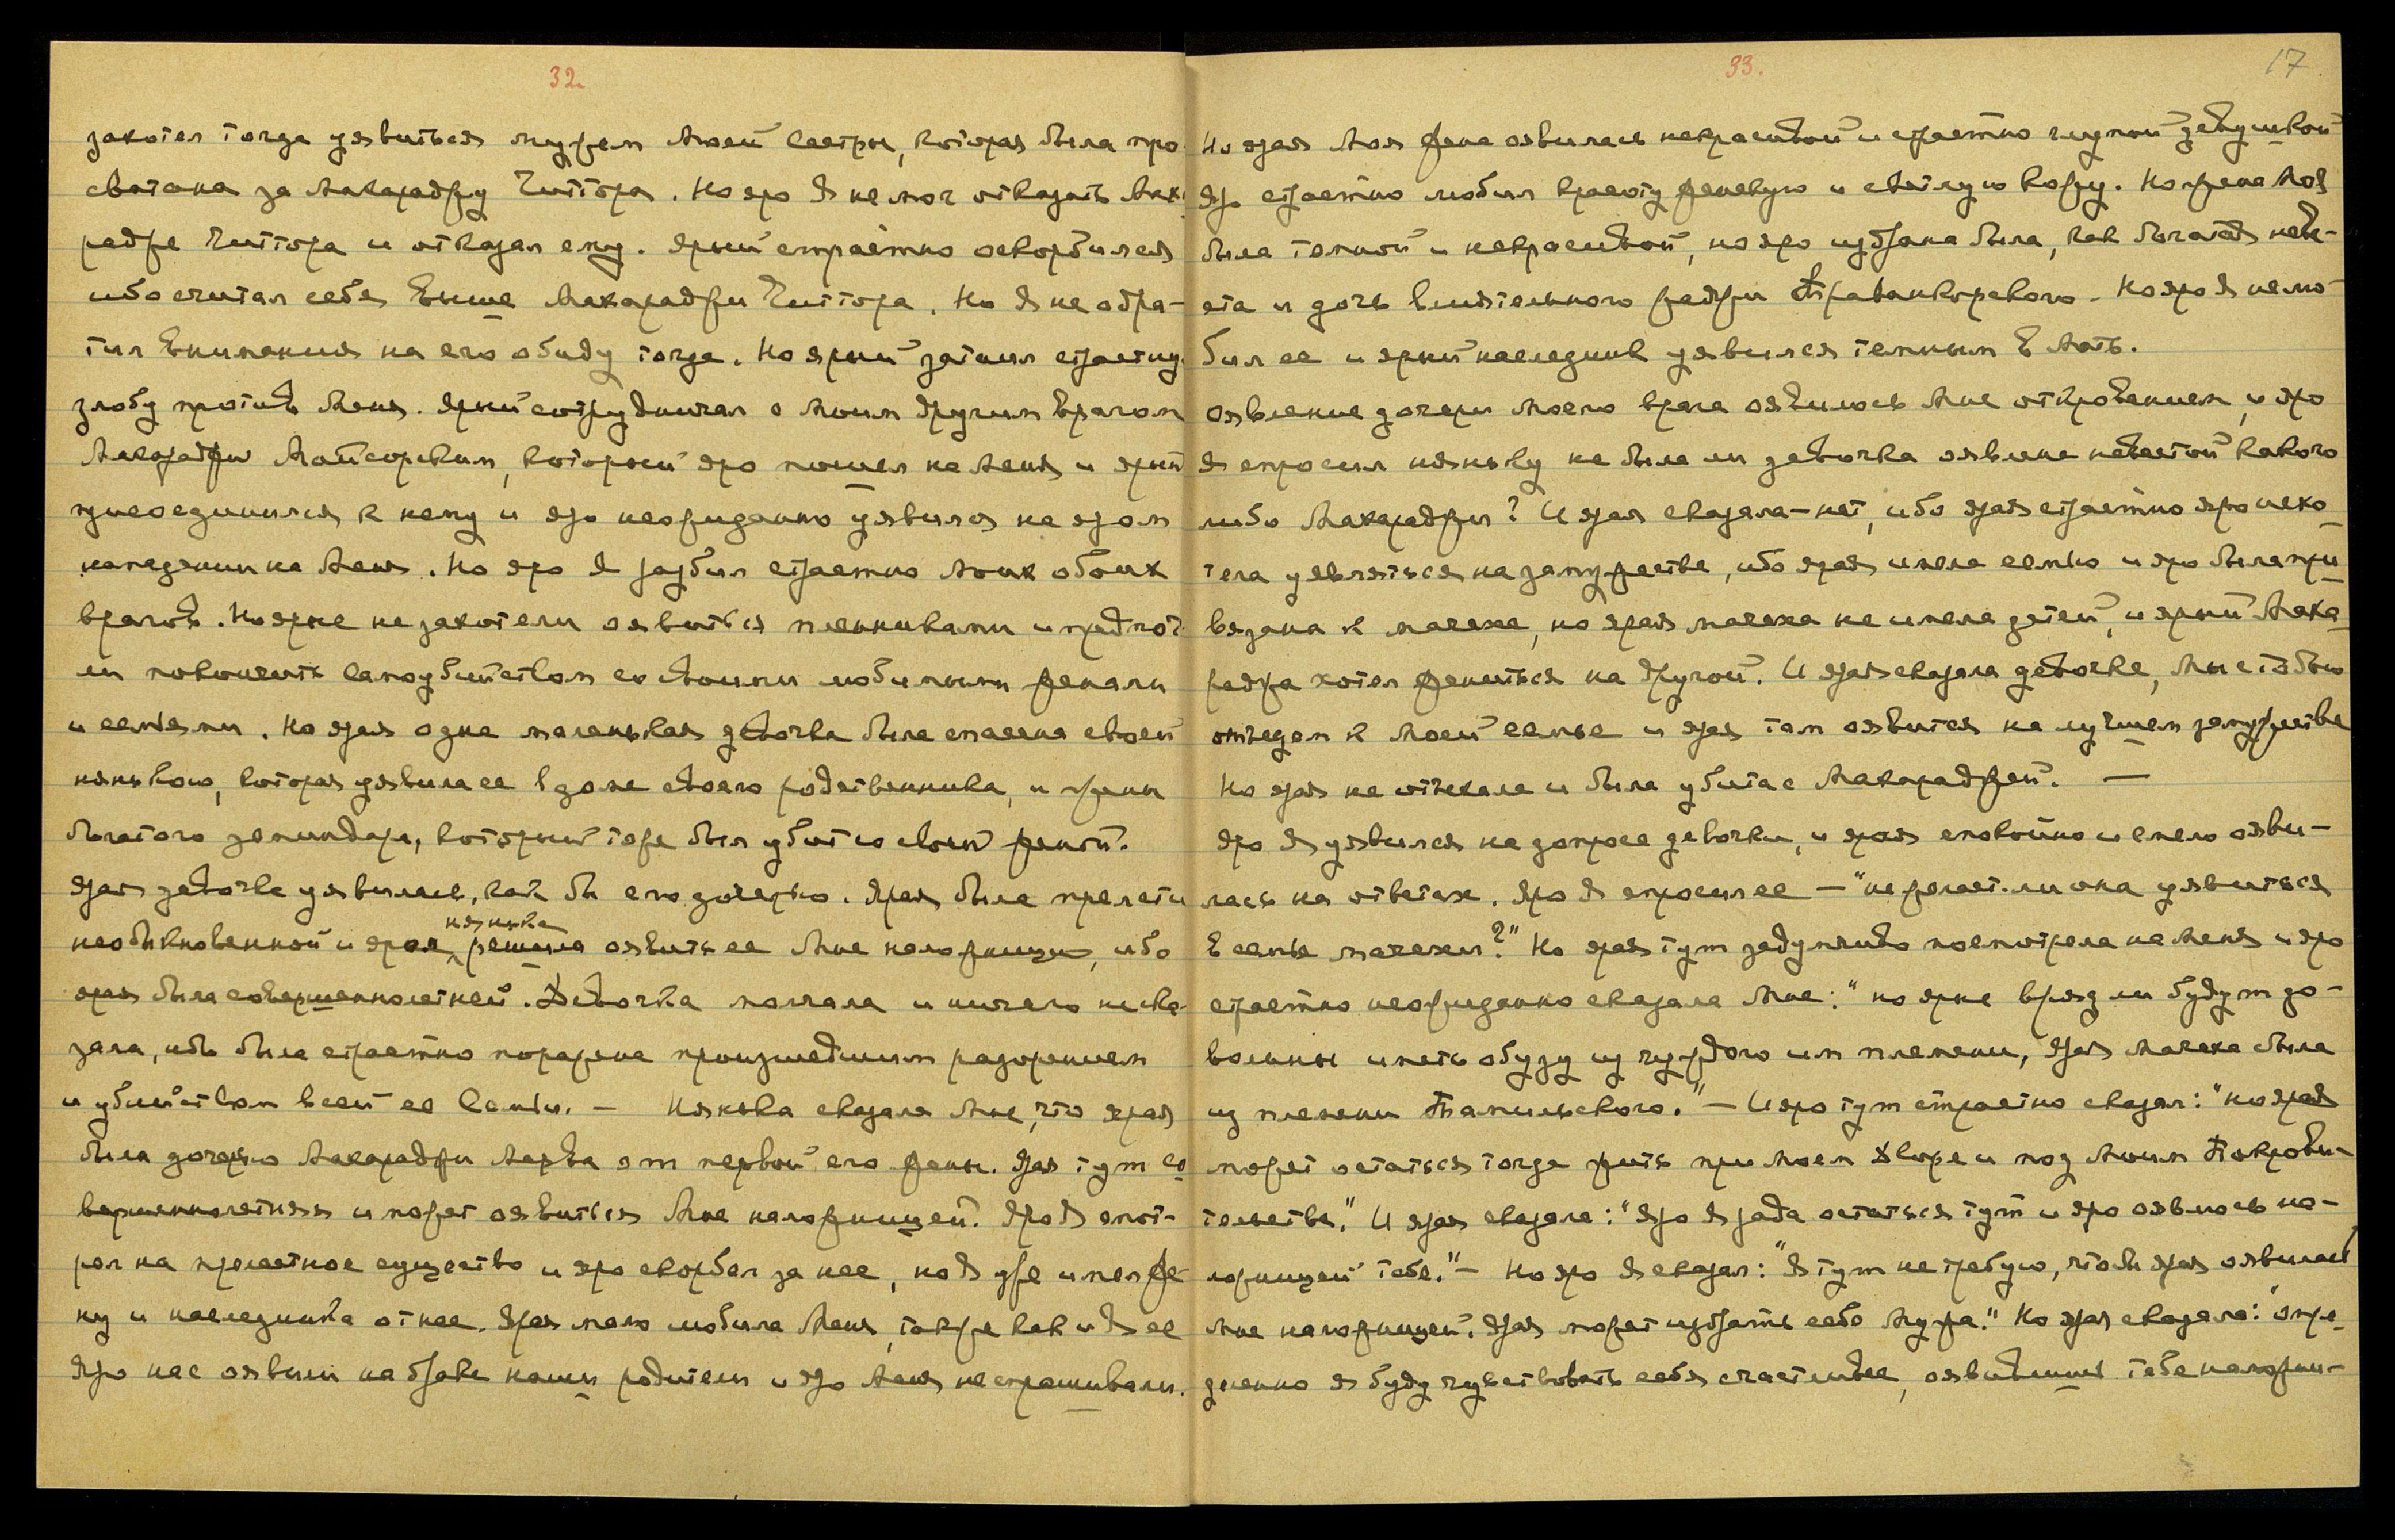 32.
захотел тогда уявиться мужем Моей Сестры, которая была про-
сватана за Махараджу Читтора. Но яро Я не мог отказать Маха-
радже Читтора и отказал ему. Ярый страстно оскорбился
ибо считал себя выше Махараджи Читтора. Но Я не обра-
тил внимания на его обиду тогда. Но ярый затаил страстную
злобу против Меня. Ярый сотрудничал с Моим другим врагом
Махараджи Майсорским, который яро пошел на Меня и ярый
присоединился к нему и яро неожиданно уявился на яром
нападении на Меня. Но яро Я разбил страстно Моих обоих
врагов. Но ярые не захотели оявиться пленниками и предпоч-
ли покончить самоубийством со своими любимыми женами
и семьями. Но ярая одна маленькая девочка была спасена своей
нянькою, которая уявила ее в доме своего родственника, и жены
богатого земиндара, который тоже был убит со своей женой.
Ярая девочка уявилась, как бы его дочерью. Ярая была прелести
необыкновенной и ярая нянька решила оявить ее Мне наложницею, ибо
ярая была совершеннолетней. Девочка молчала и ничего не ска-
зала, ибо была страстно поражена происшедшим разорением
и убийством всей ее Семьи. – Нянька сказала Мне, что ярая
была дочерью Махараджи Марва от первой его жены. Ярая тут со-
вершеннолетняя и может оявиться Мне наложницей. Яро Я смот-
рел на прелестное существо и яро скорбел за нее, но Я уже имел же-
ну и наследника от нее. Ярая мало любила Меня, также как и Я ее
Яро нас оявили на браке наши родители и яро Меня не спрашивали.
33.
17
Но ярая Моя жена оявилась некрасивой и страстно глупой девушкой
Яро страстно любил красоту женскую и светлую кожу. Но жена Моя
была темной и некрасивой, но яро избрана была, как богатая неве-
ста и дочь влиятельного раджи Траванкорского. Но яро Я не лю-
бил ее и ярый наследник уявился темным в Мать.
Оявление дочери Моего врага оявилось Мне откровением, и яро
Я спросил няньку не была ли девочка оявлена невестой какого
либо Махараджи? И ярая сказала – нет, ибо ярая страстно яро не хо-
тела уявляться на замужестве, ибо ярая имела семью и яро была при-
вязана к мачехе, но ярая мачеха не имела детей, и ярый Маха-
раджа хотел жениться на другой. И ярая сказала девочке, Мы с тобою
отъедем к Моей семье и ярая там оявится на лучшем замужестве
Но ярая не отъехала и была убита с Махараджей. —
Яро Я уявился на допросе девочки, и ярая спокойно и смело ояви-
лась на ответах. Яро Я спросил ее – "не желает ли она уявиться
в семье мачехи?" Но ярая тут задумчиво посмотрела на Меня и яро
страстно неожиданно сказала Мне: "но ярые вряд ли будут до-
вольны иметь обузу из чуждого им племени, Ярая Мачеха была
из племени Тамильского." – И яро тут страстно сказал: "но ярая
может остаться тогда жить при Моем Дворе и под Моим Покрови-
тельством." И ярая сказала: "Яро Я рада остаться тут и яро оявлюсь на-
ложницей тебе." – Но яро Я сказал: "Я тут не требую, чтобы ярая оявилась
Мне наложницей. Ярая может избрать себе Мужа." Но ярая сказала: "опре-
деленно я буду чувствовать себя счастливее, оявившись тебе наложни-